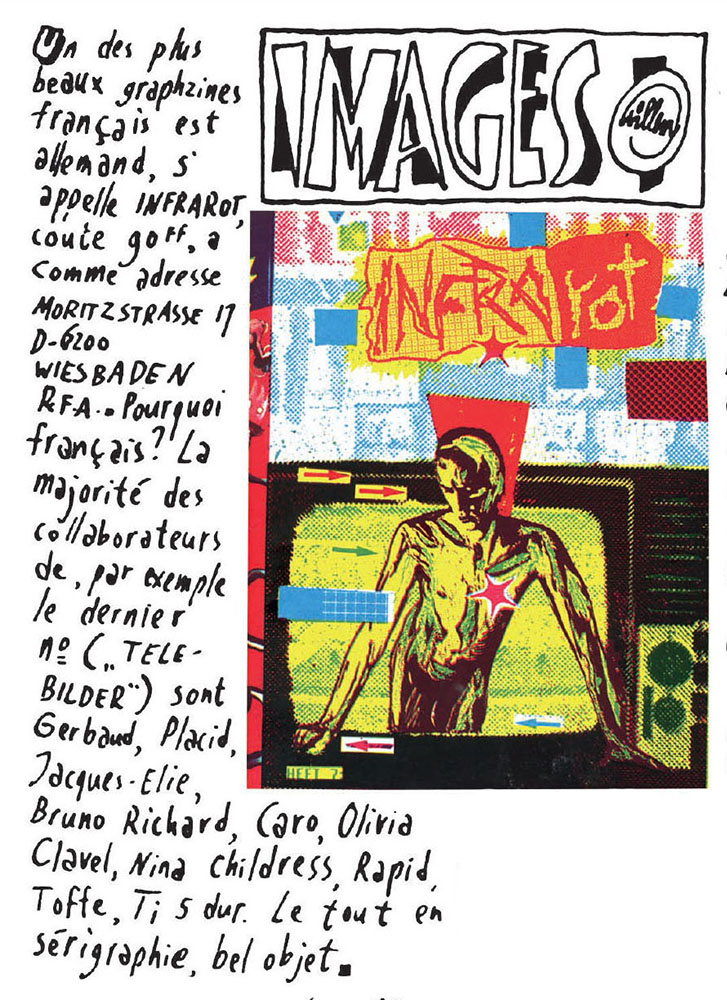 Un des plus
beaux graphzines
français est
allemand, s'
appelle INFRAROT,
coute 90FF, a
comme adresse
MORITZSTRASSE 17
D-6200
WIESBADEN
RFA.. Pourquoi
français? La
majorité des
collaborateurs
de, par exemple
le dernier
nº („TELE-
BILDER") sont
Gerbaud, Placid,
Jacques-Elie,
Bruno Richard, Caro, Olivia
Clavel, Nina childress, Rapid,
Toffe, Ti 5 dur. Le tout en
sérigraphie, bel objet.
IMAGES
Willem
INFRA rot
HEFT 7